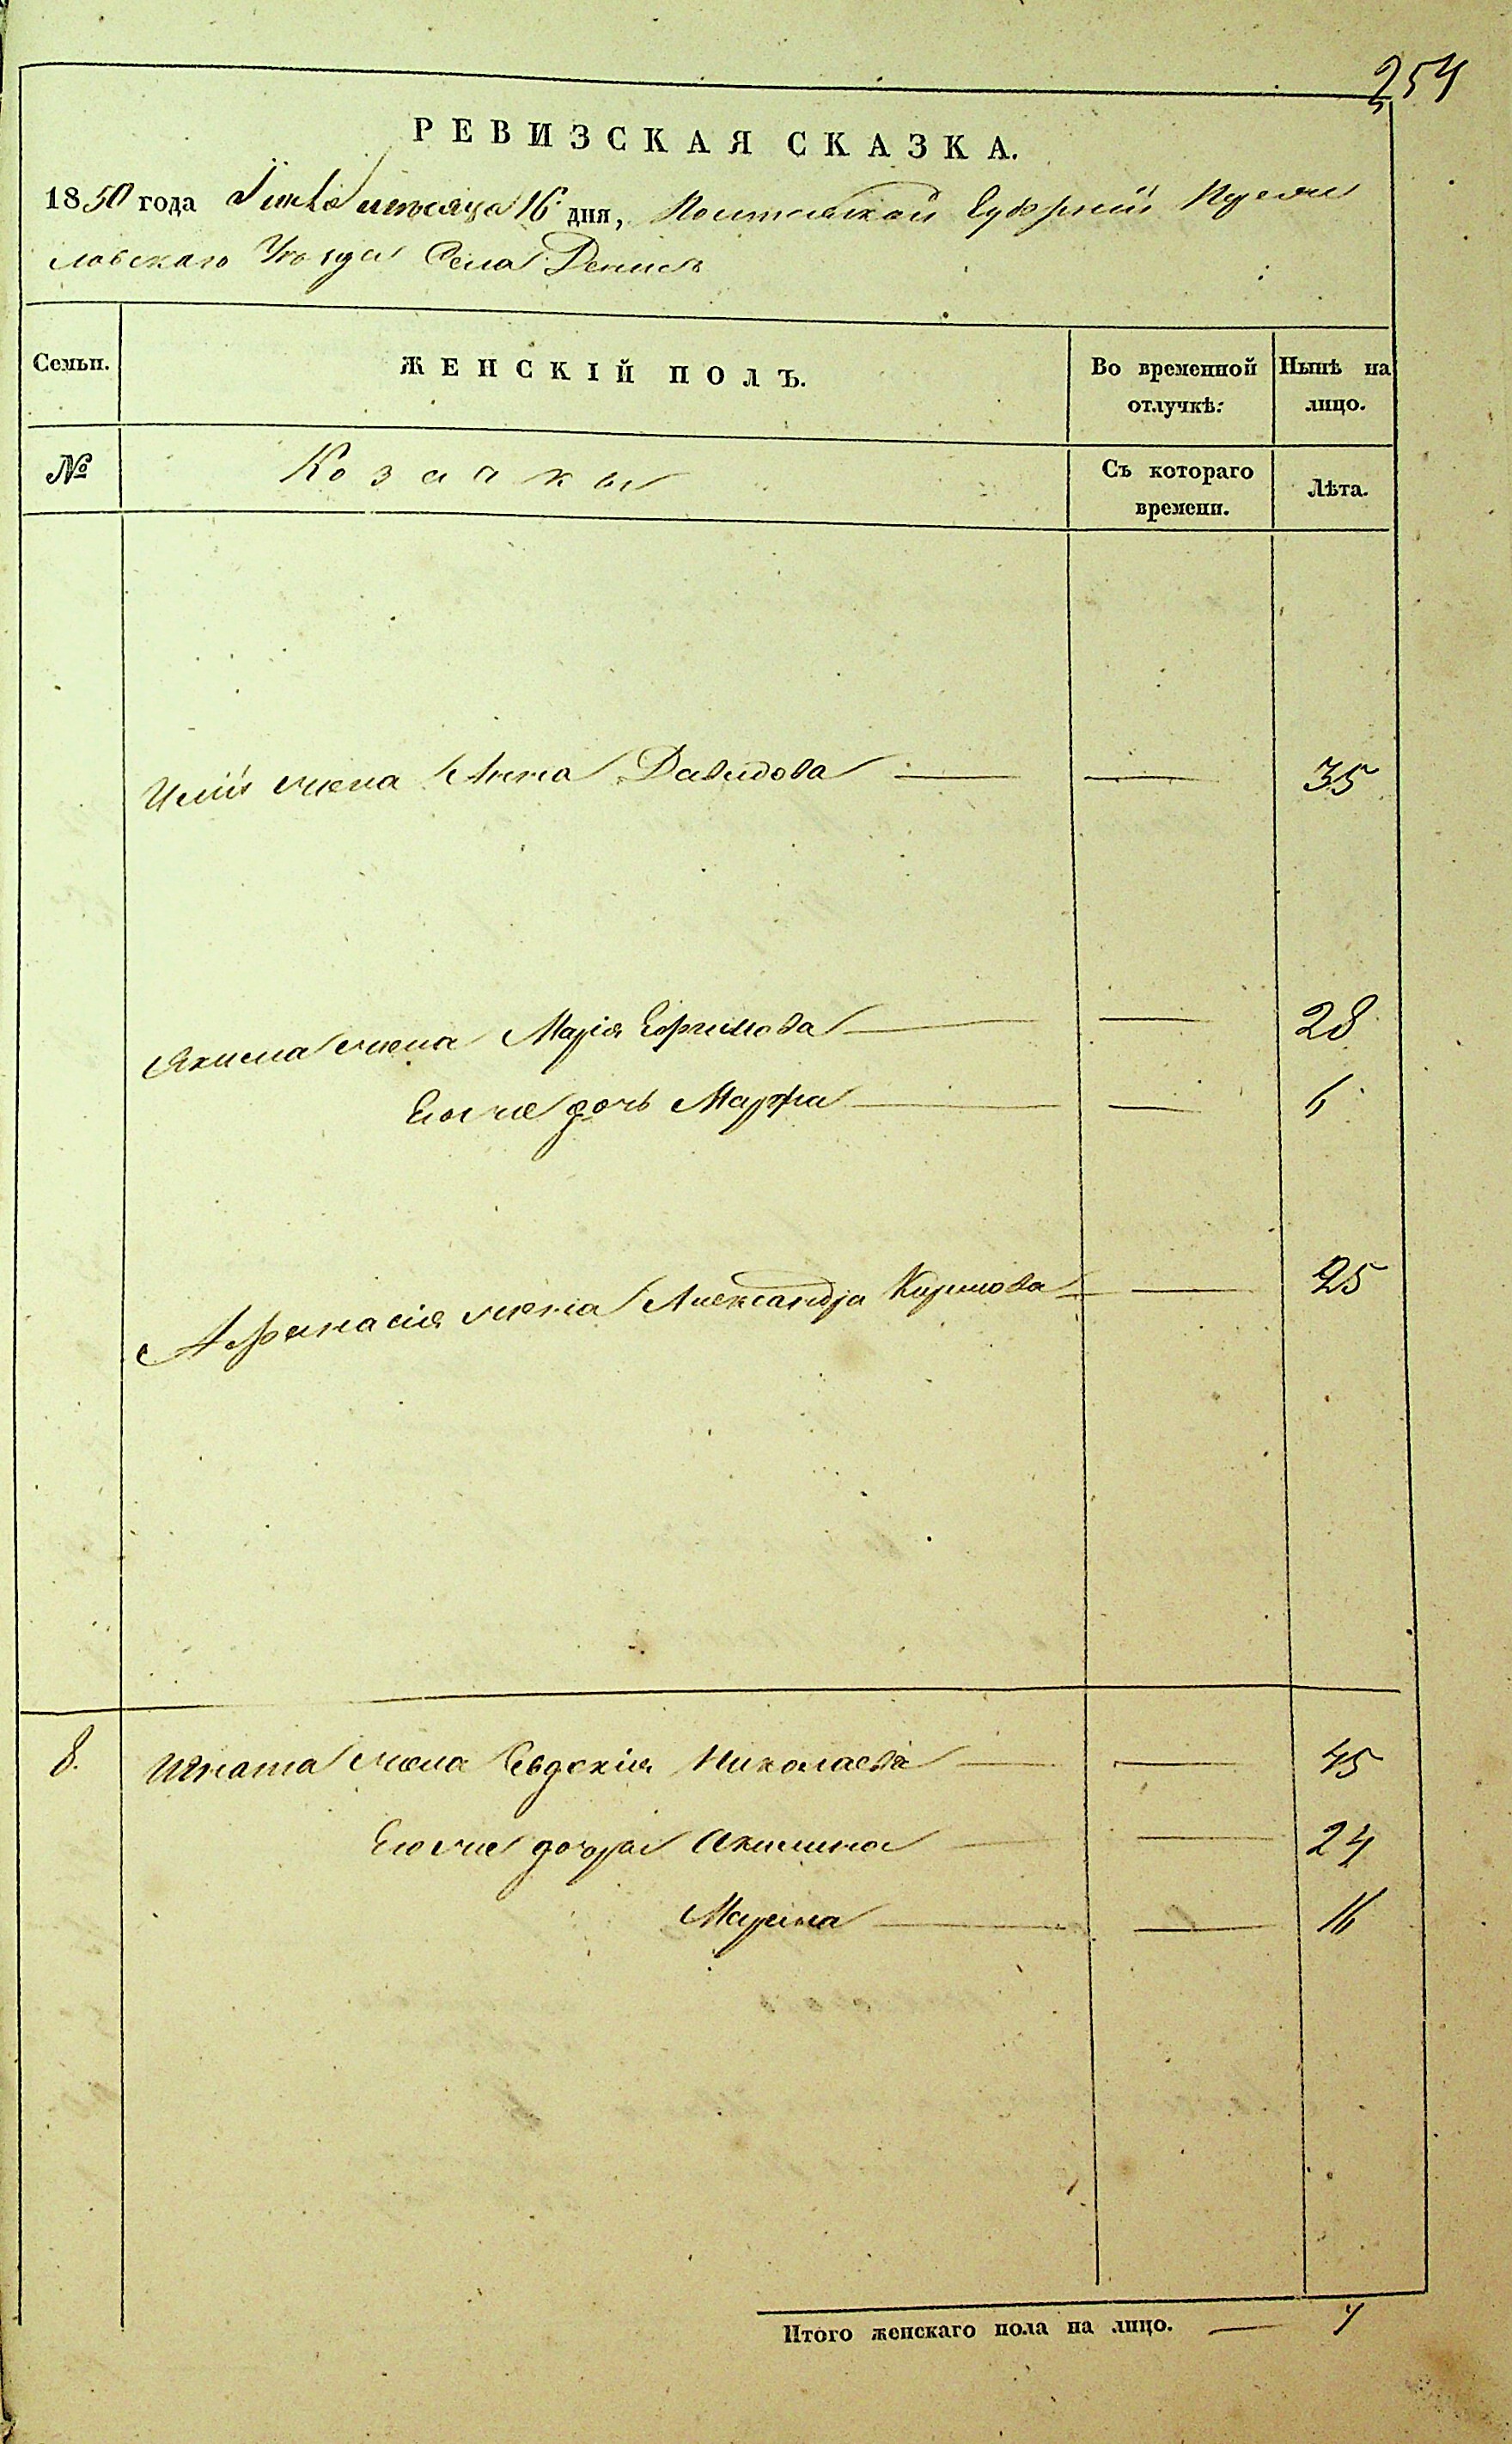 254
РЕВИЗСКАЯ СКАЗКА.
1850 года месяца 16 дня, Полтавской Губерніи Переяс
лавскаго Уѣзда Села Денисъ
Семьи.
ЖЕНСКІЙ ПОЛЪ.
Во временной отлучкѣ:
Нынѣ на лицо.
№
Козааки
Съ котораго времени.
Лѣта.
Иліи жена Анна Давидова — — 35
Якима жена Марія Ефимова — — 28
Его же дочь Марфа — — 6
Афанасія жена Александра Каринова — — 25
8. Игната жена Евдокія Николаева — — 45
Его же дочери Акилина — — 24
Марина — — 16
Итого женскаго пола на лицо. — 7